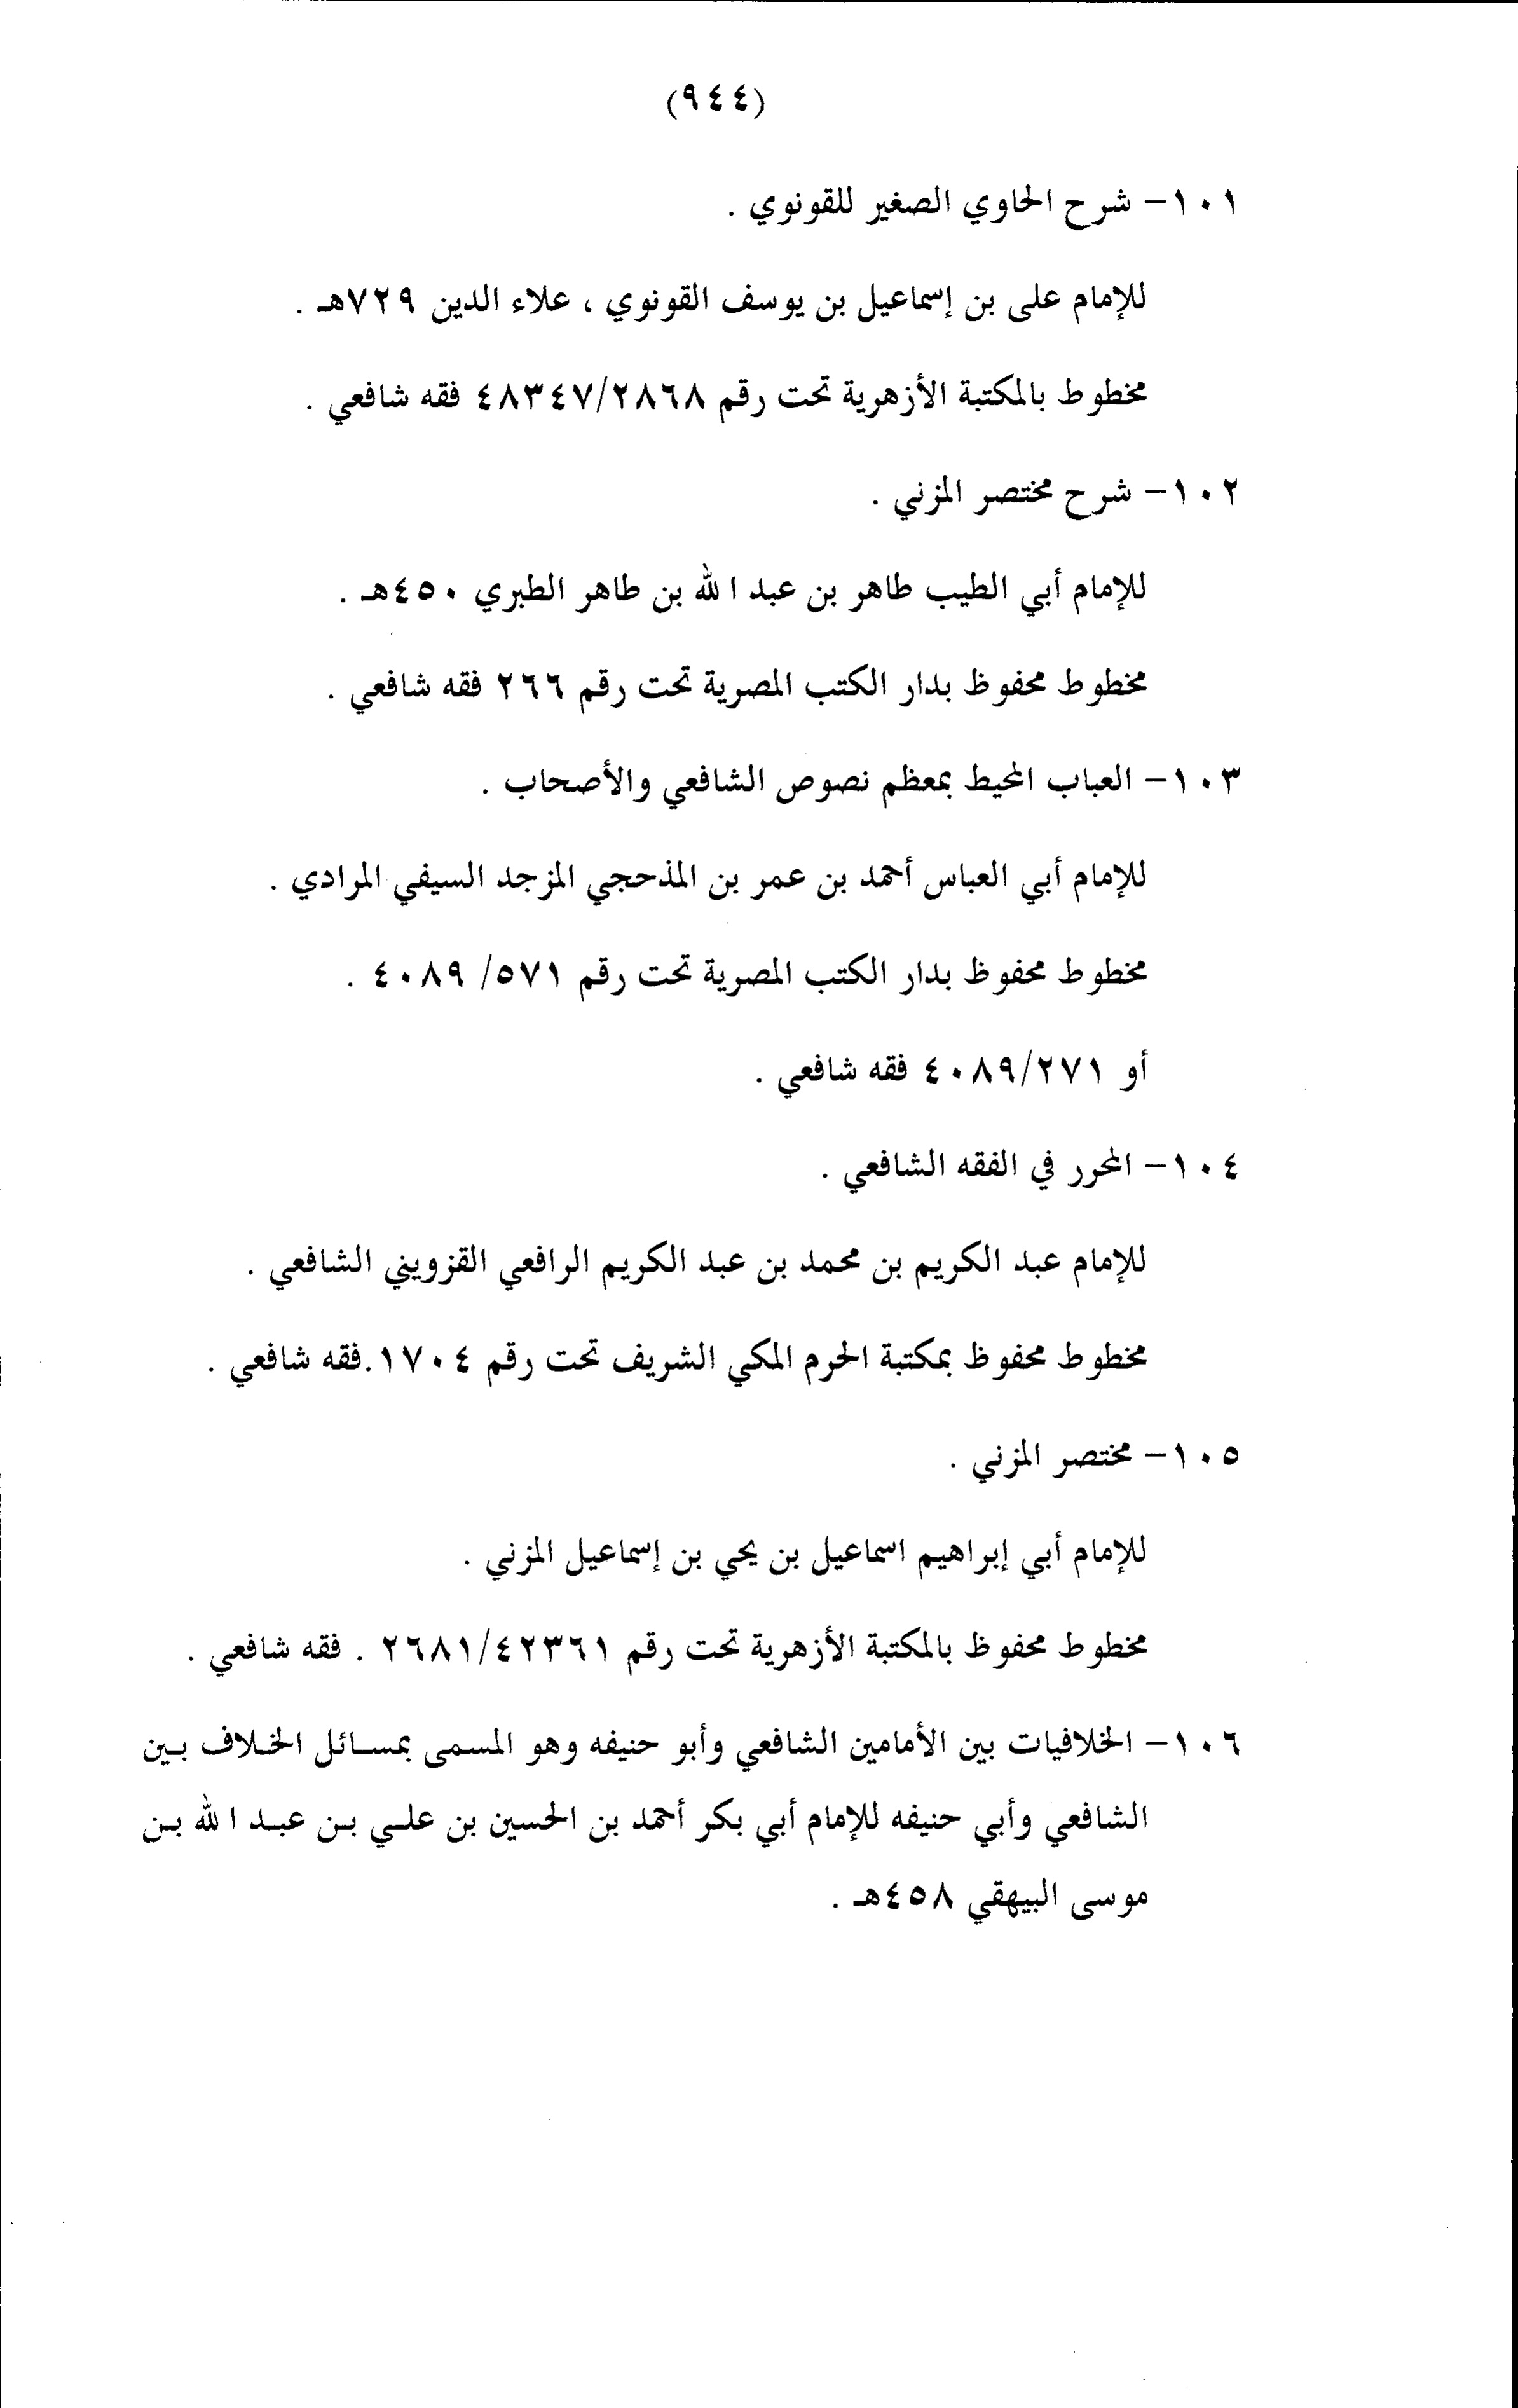 (٩٤٤)
١٠١- شرح الحاوي الصغير للقونوي .
للإمام على بن إسماعيل بن يوسف القونوي ، علاء الدين ٧٢٩هـ .
مخطوط بالمكتبة الأزهرية تحت رقم ٤٨٣٤٧/٢٨٦٨ فقه شافعي .
١٠٢- شرح مختصر المزني .
للإمام أبي الطيب طاهر بن عبد الله بن طاهر الطبري ٤٥٠هـ .
مخطوط محفوظ بدار الكتب المصرية تحت رقم ٢٦٦ فقه شافعي .
١٠٣- العباب المحيط بمعظم نصوص الشافعي والأصحاب .
للإمام أبي العباس أحمد بن عمر بن المذحجي المزجد السيفي المرادي .
مخطوط محفوظ بدار الكتب المصرية تحت رقم ٥٧١/ ٤٠٨٩ .
أو ٤٠٨٩/٢٧١ فقه شافعي .
١٠٤- المحرر في الفقه الشافعي .
للإمام عبد الكريم بن محمد بن عبد الكريم الرافعي القزويني الشافعي .
مخطوط محفوظ بمكتبة الحرم المكي الشريف تحت رقم ١٧٠٤.فقه شافعي .
١٠٥- مختصر المزني .
للإمام أبي إبراهيم اسماعيل بن يحي بن إسماعيل المزني .
مخطوط محفوظ بالمكتبة الأزهرية تحت رقم ٢٦٨١/٤٢٣٦١ . فقه شافعي .
١٠٦- الخلافيات بين الأمامين الشافعي وأبو حنيفه وهو المسمى بمسائل الخلاف بين
الشافعي وأبي حنيفه للإمام أبي بكر أحمد بن الحسين بن علي بن عبد الله بن
موسى البيهقي ٤٥٨هـ .